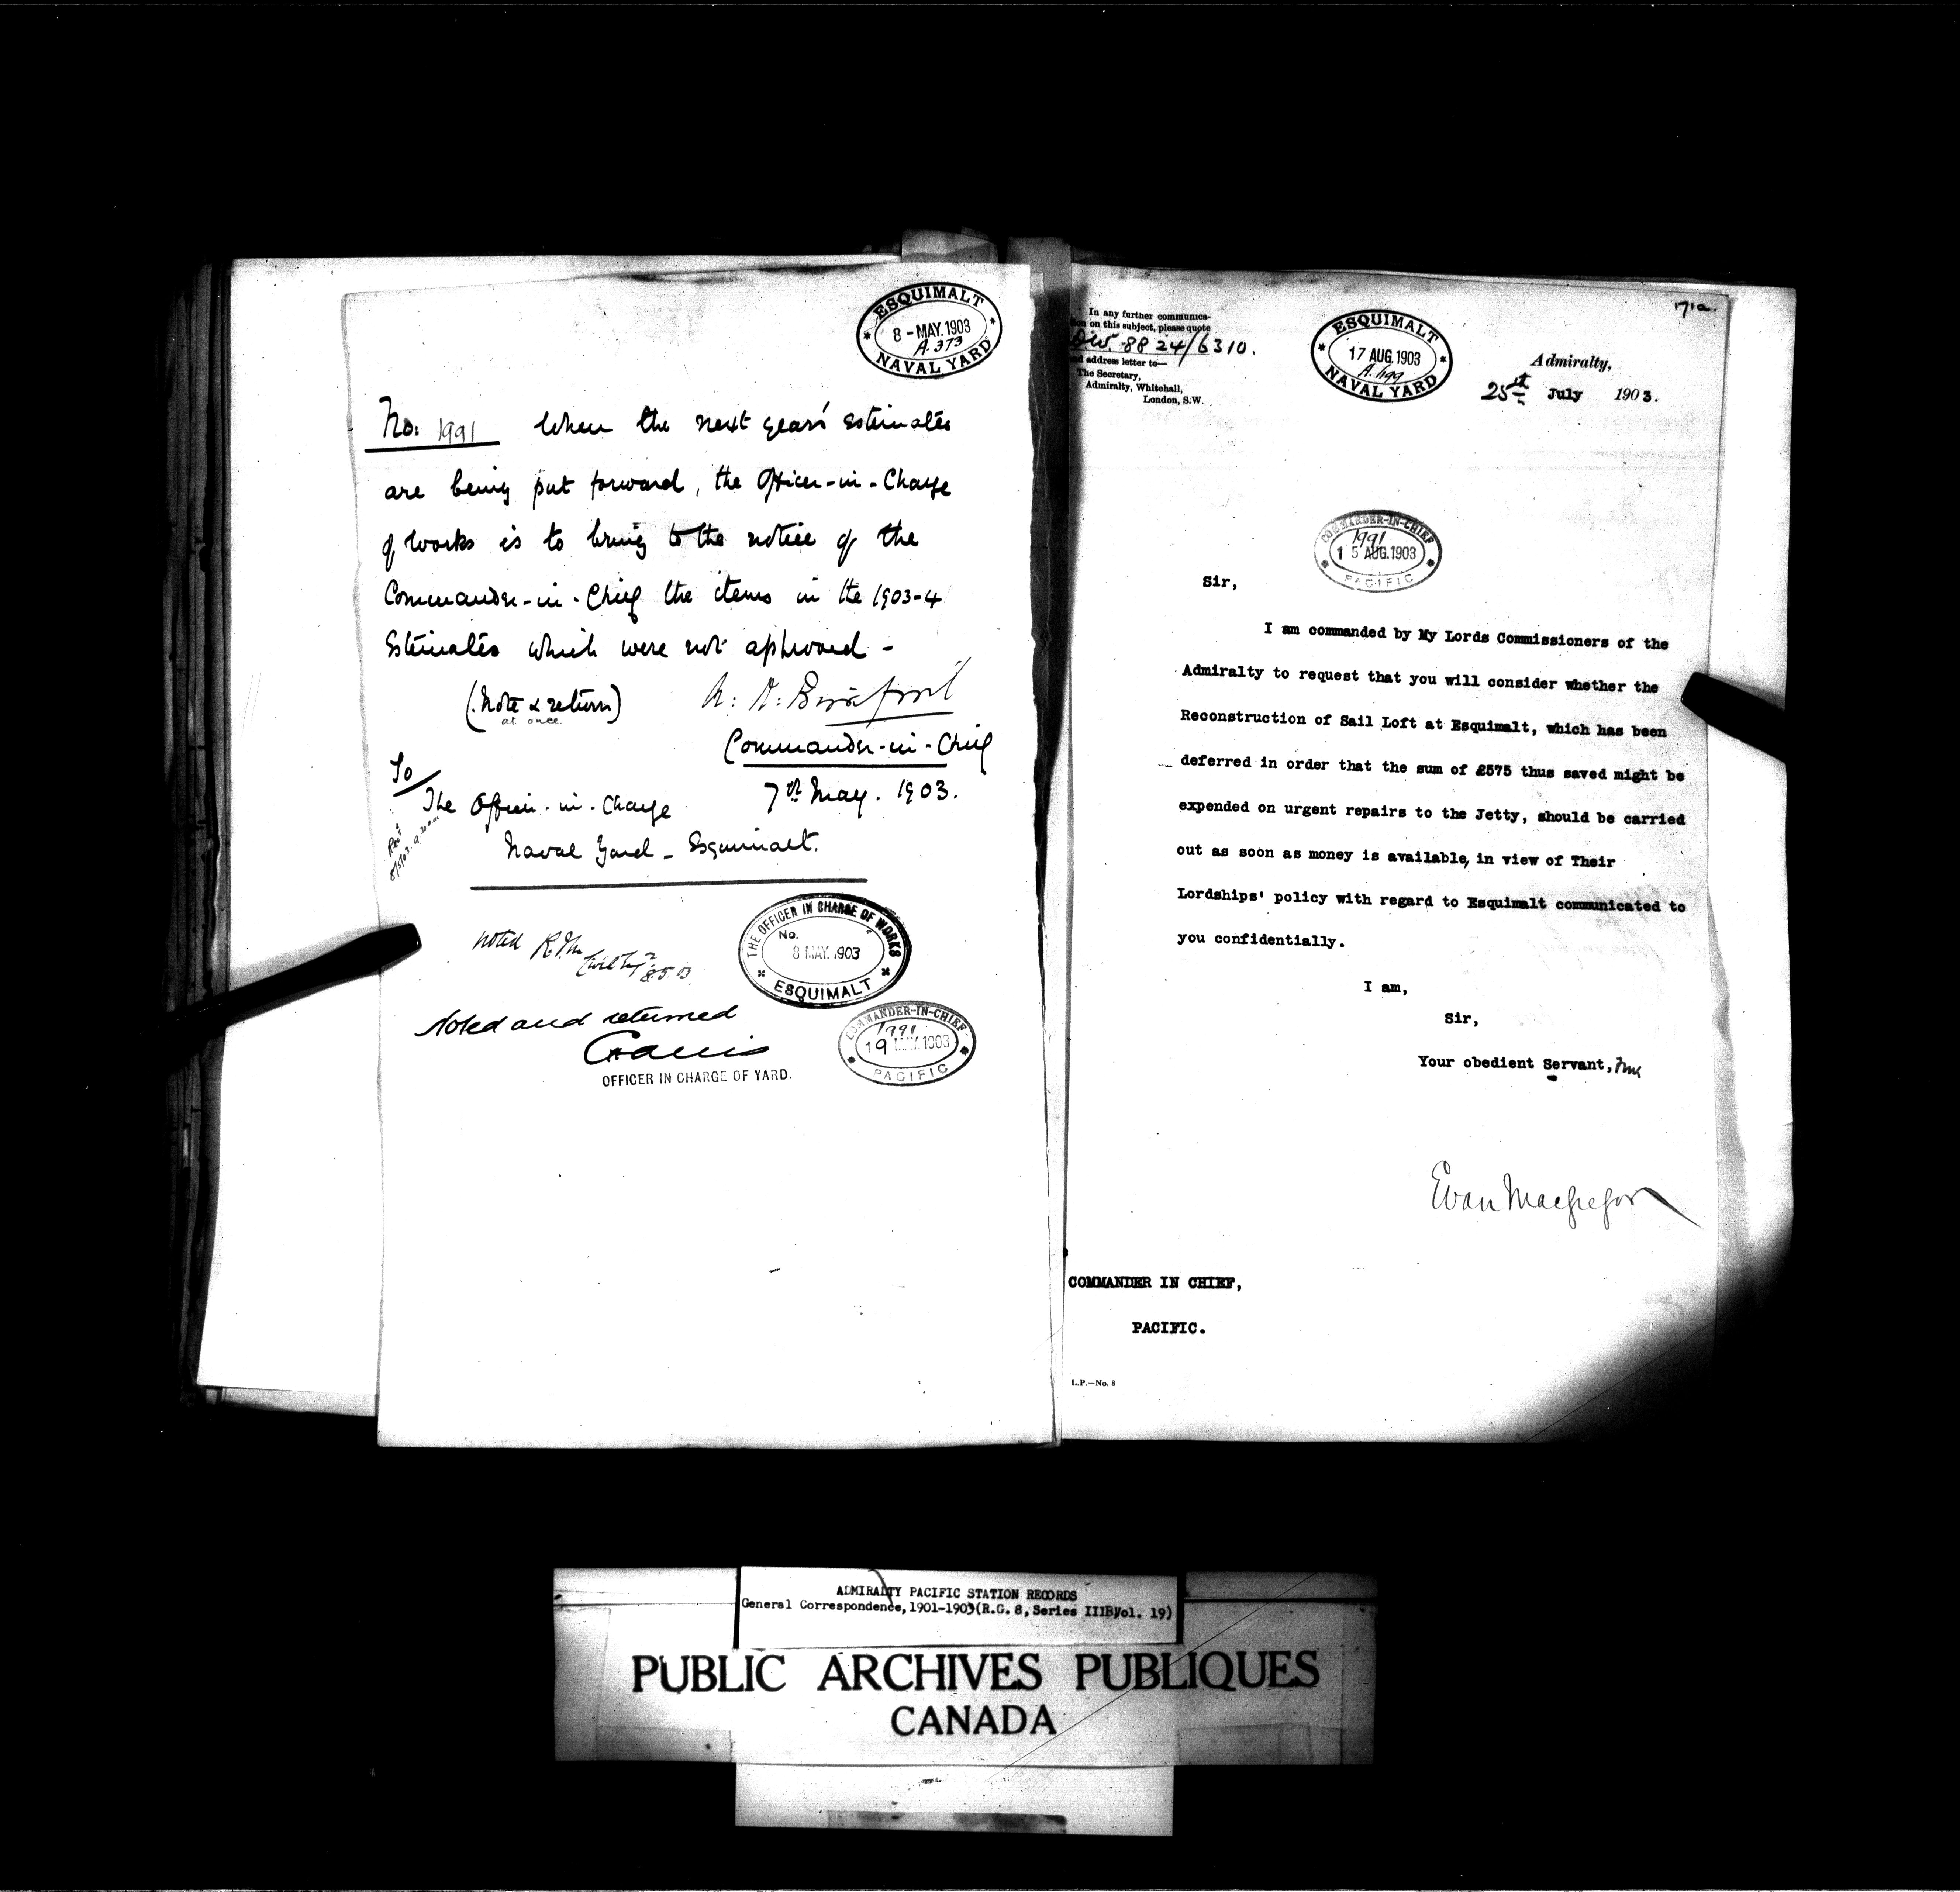 ESQUIMALT
8 - MAY. 1903
A. 373
NAVAL YARD
No: 1991 When the next year's Estimates
are being put forward, the Officer-in-Charge
of Works is to bring to the notice of the
Commander-in-Chief the items in the 1903-4
Estimates which were not approved -
(Note & return)
at once.
Commander-in-Chief
7th May. 1903.
To
The Officer-in-Charge
Naval Yard - Esquimalt.
THE OFFICER IN CHARGE OF WORKS
No.
8 MAY. 1903
ESQUIMALT
noted
Noted and returned
OFFICER IN CHARGE OF YARD.
COMMANDER-IN-CHIEF
1991
1903
PACIFIC
171a.
In any further communica-
on this subject, please quote
8824/6310.
address letter to—
The Secretary,
Admiralty, Whitehall,
London, S.W.
ESQUIMALT
17 AUG. 1903
NAVAL YARD
Admiralty,
25th July 1903.
COMMANDER-IN-CHIEF
1991
15 AUG. 1903
PACIFIC
Sir,
I am commanded by My Lords Commissioners of the
Admiralty to request that you will consider whether the
Reconstruction of Sail Loft at Esquimalt, which has been
deferred in order that the sum of £575 thus saved might be
expended on urgent repairs to the Jetty, should be carried
out as soon as money is available, in view of Their
Lordships' policy with regard to Esquimalt communicated to
you confidentially.
I am,
Sir,
Your obedient Servant,
Evan Macgregor
COMMANDER IN CHIEF,
PACIFIC.
L.P.—No. 8
ADMIRALTY PACIFIC STATION RECORDS
General Correspondence, 1901-1903 (R.G. 8, Series IIIB, Vol. 19)
PUBLIC ARCHIVES PUBLIQUES
CANADA